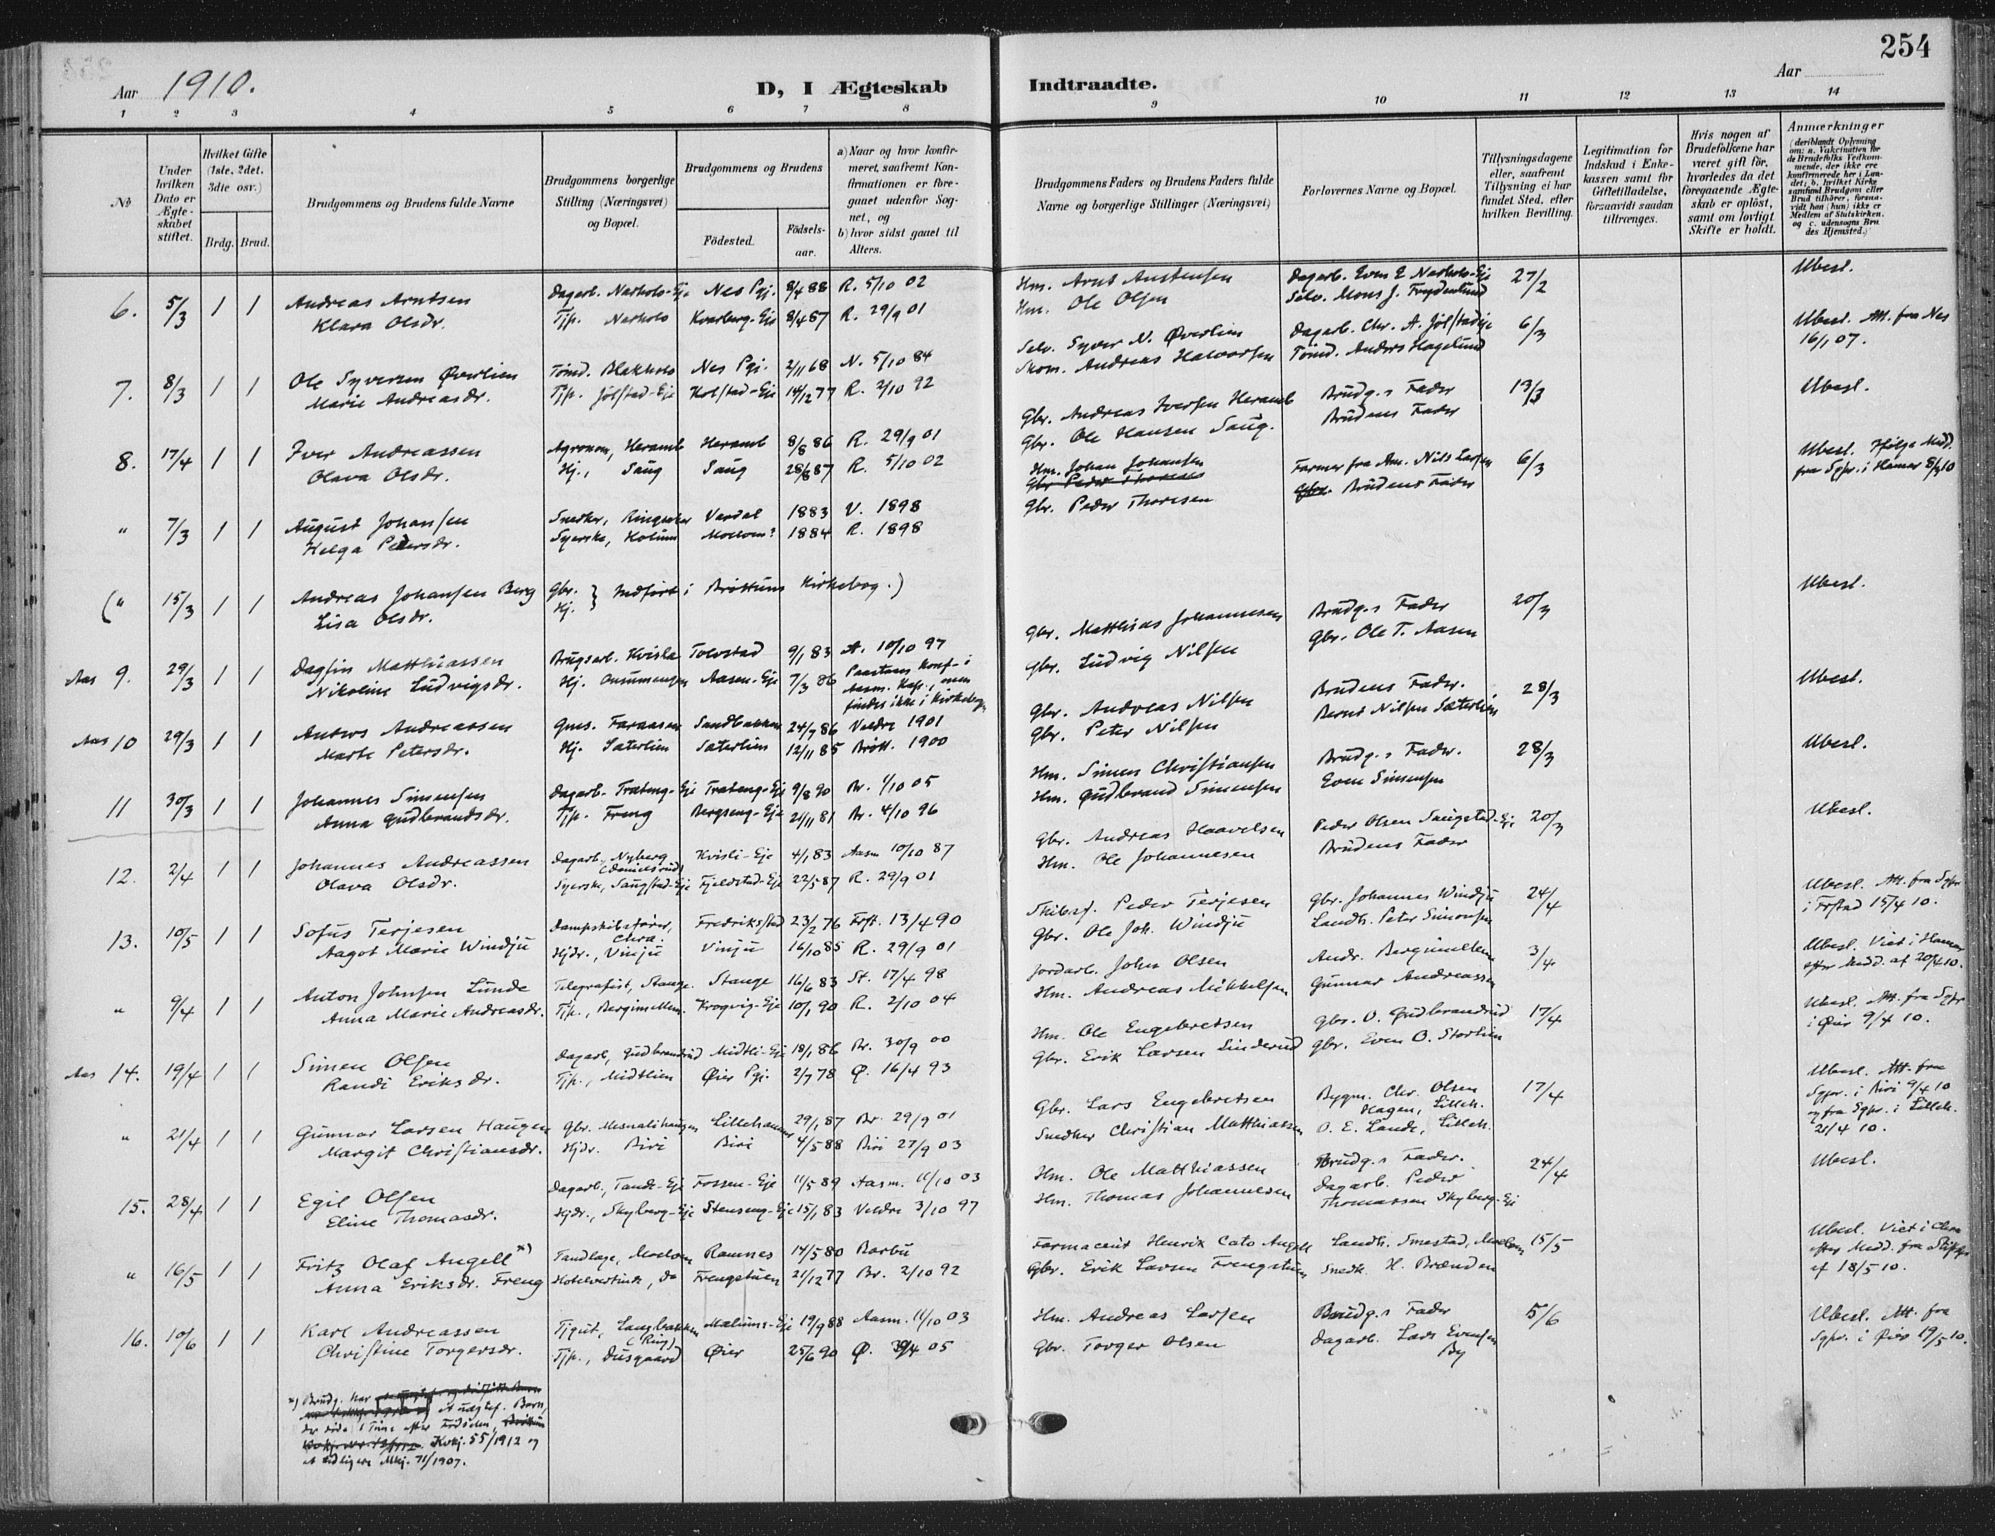 254
Aar 1910.
D, I Ægteskab Indtraadte.
Aar
1 2 3 4 5 6 7 8 9 10 11 12 13 14
No
Under hvilken Dato er Ægteskabet stiftet.
Hvilket Gifte (1ste, 2det, 3die osv.)
Brdg. Brud.
Brudgommens og Brudens fulde Navne
Brudgommens borgerlige Stilling (Næringsvei) og Bopæl.
Brudgommens og Brudens
Födested.
Födsels-aar.
a) Naar og hvor konfirmeret, saafremt Konfirmationen er foregaaet udenfor Sognet, og
b) hvor sidst gaaet til Alters.
Brudgommens Faders og Brudens Faders fulde Navne og borgerlige Stillinger (Næringsvei)
Forlovernes Navne og Bopæl.
Tillysningsdagene eller, saafremt Tillysning ei har fundet Sted, efter hvilken Bevilling.
Legitimation for Indskud i Enkekassen samt for Giftetilladelse, forsaavidt saadan tiltrænges.
Hvis nogen af Brudefolkene har været gift för, hvorledes da det foregaaende Ægteskab er oplöst, samt om lovligt Skifte er holdt.
Anmærkninger
6. 5/3 1 1 Andreas Arntsen Dagarb. Narholo-Eje Nes Pgj. 8/4 88 R. 5/10 02 Hm. Arnt Austensen Dagarb. Even E Narholo-Eje 27/2 Ubesl.
Klara Olsdr. Tjp. Narholo Kvarberg-Eje 8/4 87 R. 29/9 01 Hm. Ole Olsen Selv. Mons J. Frydenlund
7. 8/3 1 1 Ole Syversen Øverlien Tømd. Blakholo Nes Pgj. 2/11 68 N. 5/10 84 Selv. Syver N. Øverlien Dagarb. Chr. A. Jølstadeje 6/3 Ubesl. Att. fra Nes
Marie Andreasdr. Tjp. Jølstad-Eje Kolstad-Eje 14/12 77 R. 2/10 92 Skom. Andreas Halvorsen Tømd. Anders Hagelund 16/1 07.
8. 17/4 1 1 Iver Andreassen Agronom, Heramb Heramb 8/8 86 R. 29/9 01 Gbr. Andreas Iversen Heramb Brudg.s Fader 13/3 Ubesl.
Olava Olsdr. Hj., Saug Saug 28/8 87 R. 5/10 02 Gbr. Ole Hansen Saug. Brudens Fader
" 7/3 1 1 August Johansen Snedker, Ringsaker Verdal 1883 V. 1898 Hm. Johan Johansen Farmer fra Am. Nils Larsen 6/3 Ubesl. Ifølge Medd.
Helga Pedersdr. Syerske, Holum Moelven? 1884 R. 1898 Gbr. Peder Thoresen Brudens Fader fra Sgpr. i Hamar 8/3 10
(" 15/3 1 1 Andreas Johansen Berg Gbr. } Indført i Brøttums Kirkebog.)
Lisa Olsdr. Hj.
Aas 9. 29/3 1 1 Dagfin Matthiassen Brugsarb. Kvisla Tolvstad 9/1 83 A. 10/10 97 Gbr. Matthias Johannesen Brudg.s Fader 20/3 Ubesl.
Nikoline Ludvigsdr. Hj. Aasen-Eje 7/3 86 Paastaas konf. i Aasm. Kap., men findes ikke i Kirkebog. Gbr. Ludvig Nilsen Gbr. Ole T. Aasen
Aas 10 29/3 1 1 Anders Andreassen Gms. Faraasen Sandbakken 24/7 86 Veldre 1901 Gbr. Andreas Nilsen Brudens Fader. 28/3 Ubesl.
Marte Petersdr. Hj. Sæterlien Sæterlien 12/11 85 Brøtt. 1900 Gbr. Peter Nilsen Bernt Nilsen Sæterlien
11 30/3 1 1 Johannes Simensen Dagarb. Træteng-Eje Træteng-Eje 9/8 90 Br. 1/10 05 Hm. Simen Christiansen Brudg.s Fader. 28/3 Ubesl.
Anna Gudbrandsdr. Tjp. Freng Bergseng-Eje 21/11 81 Br. 4/10 96 Hm. Gudbrand Simensen Even Simensen
12. 2/4 1 1 Johannes Andreassen Dagarb., Nyberg (Danielsrud) Kvisli-Eje 4/1 83 Aasm 10/10 87 Gbr. Andreas Haavelsen Peder Olsen Saugstad-Eje 20/3 Ubesl.
Olava Olsdr. Syerske, Saugstad-Eje Fjeldstad-Eje 22/5 87 R. 29/9 01 Hm. Ole Johannesen Brudens Fader
13. 10/5 1 1 Sofus Terjesen Dampskibsfører, Chra. Fredriksstad 23/2 76 Frst. 13/4 90 Skibsf. Peder Terjesen Gbr. Johannes Windju 24/4 Ubesl. Att. fra Sgpr
Aagot Marie Windju Hjdr., Vinju Vinju 16/10 85 R. 29/9 01 Gbr. Ole Joh. Windju Landh. Peter Simensen i Frstad 15/4 10.
" 9/4 1 1 Anton Johnsen Lunde Telegrafist, Stange Stange 16/6 83 St. 17/4 98 Jordarb. John Olsen Andr. Bergimellem 3/4 Ubesl. Viet i Hamar
Anna Marie Andreasdr. Tjp., Bergimellem Krogvig-Eje 10/1 90 R. 2/10 04 Hm. Andreas Mikkelsen Gunnar Andreassen efter Medd. af 20/4 10.
Aas 14. 19/4 1 1 Simen Olsen Dagarb, Gudbrandsrud Midtli-Eje 18/1 86 Br. 30/9 00 Hm. Ole Engebretsen Gbr. O. Gudbrandsrud 17/4 Ubesl. Att. fra Sgpr
Randi Eriksdr. Tjp., Midtlien Øier Pgj. 2/7 78 Ø. 16/4 93 Gbr. Erik Larsen Linderud Gbr. Even O. Storlien i Øier 9/4 10.
" 21/4 1 1 Gunnar Larsen Haugen Gbr. Mesnalihaugen Lillehammer 29/1 87 Br. 29/9 01 Gbr. Lars Engebretsen Bygm. Chr. Olsen Hagen, Lilleh. 17/4 Ubesl. Att. fra Sgpr. i Biri 9/4 10
Margit Christiansdr. Hjdr. Biri Biri 4/5 88 Biri 27/9 03 Snedker Christian Matthiassen O. E. Lande, Lilleh. og fra Sgpr. i Lilleh. 21/4 10.
15. 28/4 1 1 Egil Olsen Dagarb., Tande-Eje Fossen-Eje 11/5 89 Aasm. 11/10 03 Hm. Ole Matthiassen Brudg.s Fader. 24/4 Ubesl.
Eline Thomasdr. Hjdr., Skyberg-Eje Stenseng-Eje 15/1 83 Veldre 3/10 97 Hm. Thomas Johannesen Dagarb. Peder Thomassen Skyberg-Eje
" 16/5 1 1 Fritz Olaf Angell x) Tandlæge, Moelven Ramnes 14/5 80 Barbu Farmaceut Henrik Cato Angell Landh. Smestad, Moelven 15/5 Ubesl. Viet i Chra
Anna Eriksdr. Freng Hotelvertinde, do Frengstuen 21/12 77 Br. 2/10 92 Gbr. Erik Larsen Frengstuen Snedk. H. Brænden efter Medd. fra Stiftspr. af 18/5 10.
16. 10/6 1 1 Karl Andreassen Tjgut, Langbakken (Rings) Mælums-Eje 19/9 88 Aasm. 11/10 03 Hm. Andreas Larsen Brudg.s Fader 5/6 Ubesl. Att. fra
Christine Torgersdr. Tjp., Dusgaard Øier 25/6 90 Ø. 05 Gbr. Torger Olsen Dagarb. Lars Evensen By Sgpr. i Øier 19/5 10.
x) Brudg. har
et udøbt. Barn,
der døde 1 Time efter Fødselen,
Kvkj. 55/1912 og
et tidligere Mkj. 71/1907.